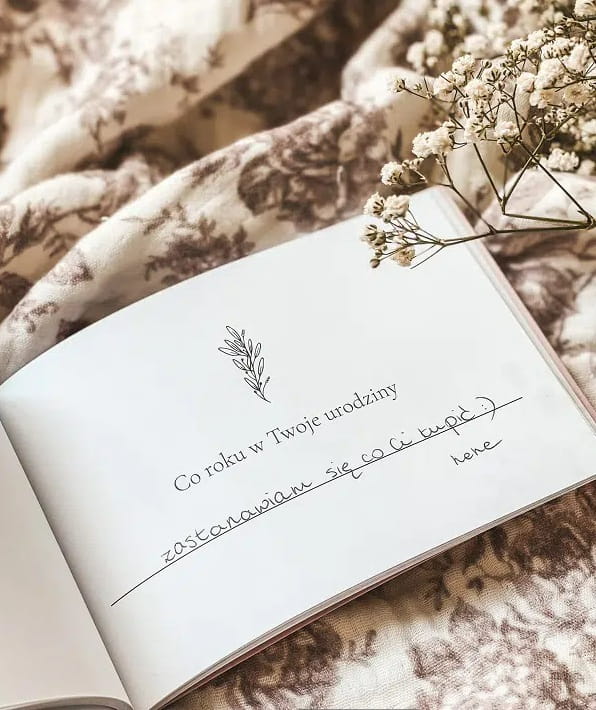 Co roku w Twoje urodziny
zastanawiam się co Ci kupić :)
hehe